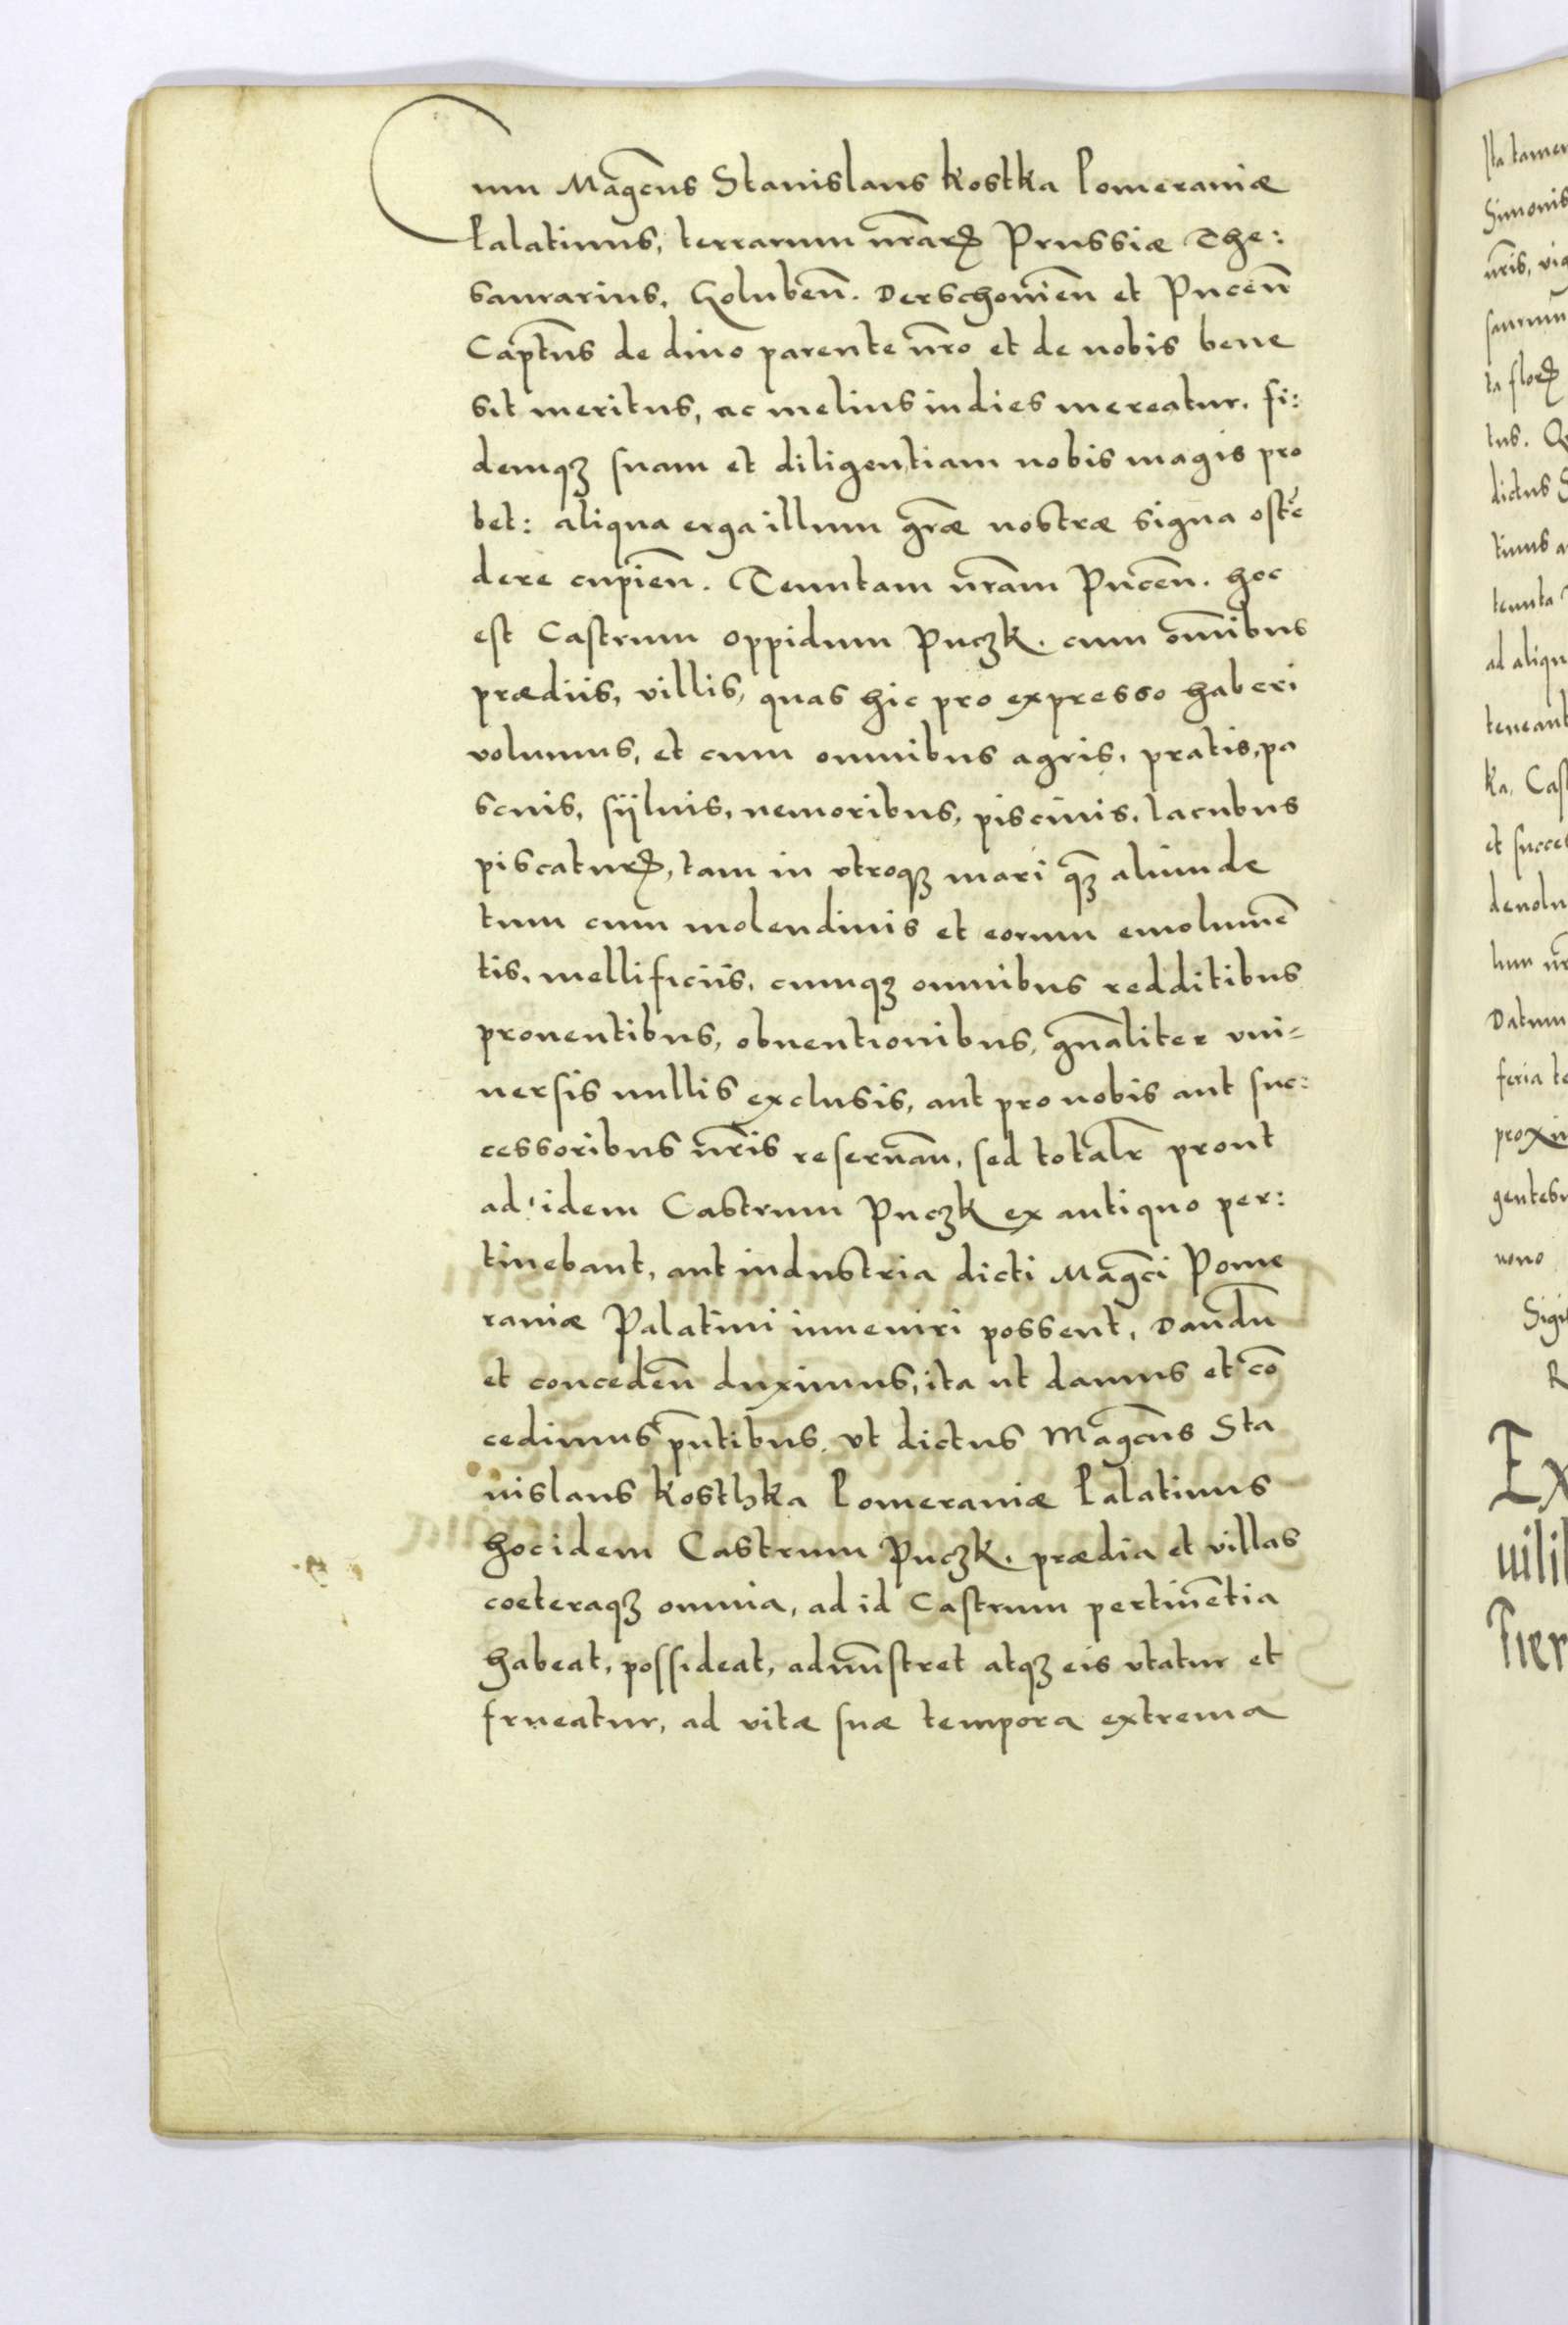 Cum Magc̄us Stanislaus Kostka Pomeraniæ
Palatinus, terrarum nr̄arꝝ Prussiæ The:
saurarius, Golubeñ. Derschouieñ et Puceñ
Captn̄s de diuo parente nr̄o et de nobis bene
sit meritus, ac melius indies mereatur, fi:
demqꝫ suam et diligentiam nobis magis pro
bet: aliqua erga illum gr̄æ nostræ signa ostē
dere cupieñ. Tenutam nr̄am Puceñ. hoc
est Castrum oppidum Puczk. cum om̄ibus
prædiis, villis, quas hic pro expresso haberi
volumus, et cum omnibus agris, pratis, pa
scuis, sÿluis, nemoribus, piscinis, lacubus
piscaturꝝ, tam in vtroqꝫ mari qꝫ̄ aliunde
tum cum molendinis et eorum emolumē
tis, mellificiis, cumqꝫ omnibus redditibus
prouentibus, obuentionibus, gn̄aliter vni-
uersis nullis exclusis, aut pro nobis aut suc:
cessoribus nr̄is reseruañ, sed totalr̄ prout
ad idem Castrum Puczk ex antiquo per:
tinebant, aut industria dicti Magc̄i Pome
raniæ Palatini inueniri possent, Dandū
et concedeñ duximus, ita ut damus et cō
cedimus pn̄tibus, vt dictus Magcn̄s Sta
nislaus Kosthka Pomeraniæ Palatinus
hoc idem Castrum Puczk. prædia et villas
coeteraqꝫ omnia, ad id Castrum pertinētia
habeat, possideat, admīstret atqꝫ eis vtatur et
frueatur, ad vitæ suæ tempora extrema
Ita tamen
Simonis
nr̄is, 
ta florꝝ
tus.
dictus
tenuta
ad aliqu
teneant
ka, Cas
et succe
deuolu
Datum
feria te
proxi
gentes
nono
Sigi
R
Ex